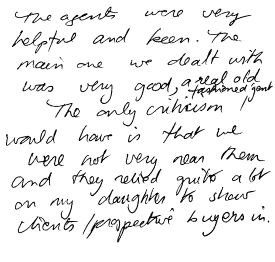 The agents were very
helpful and keen. The
main one we dealt with
was very good, a real old
fashioned gent
The only criticism I
would have is that we
were not very near them
and they relied quite a lot
on my daughter to show
clients/prospective buyers in.